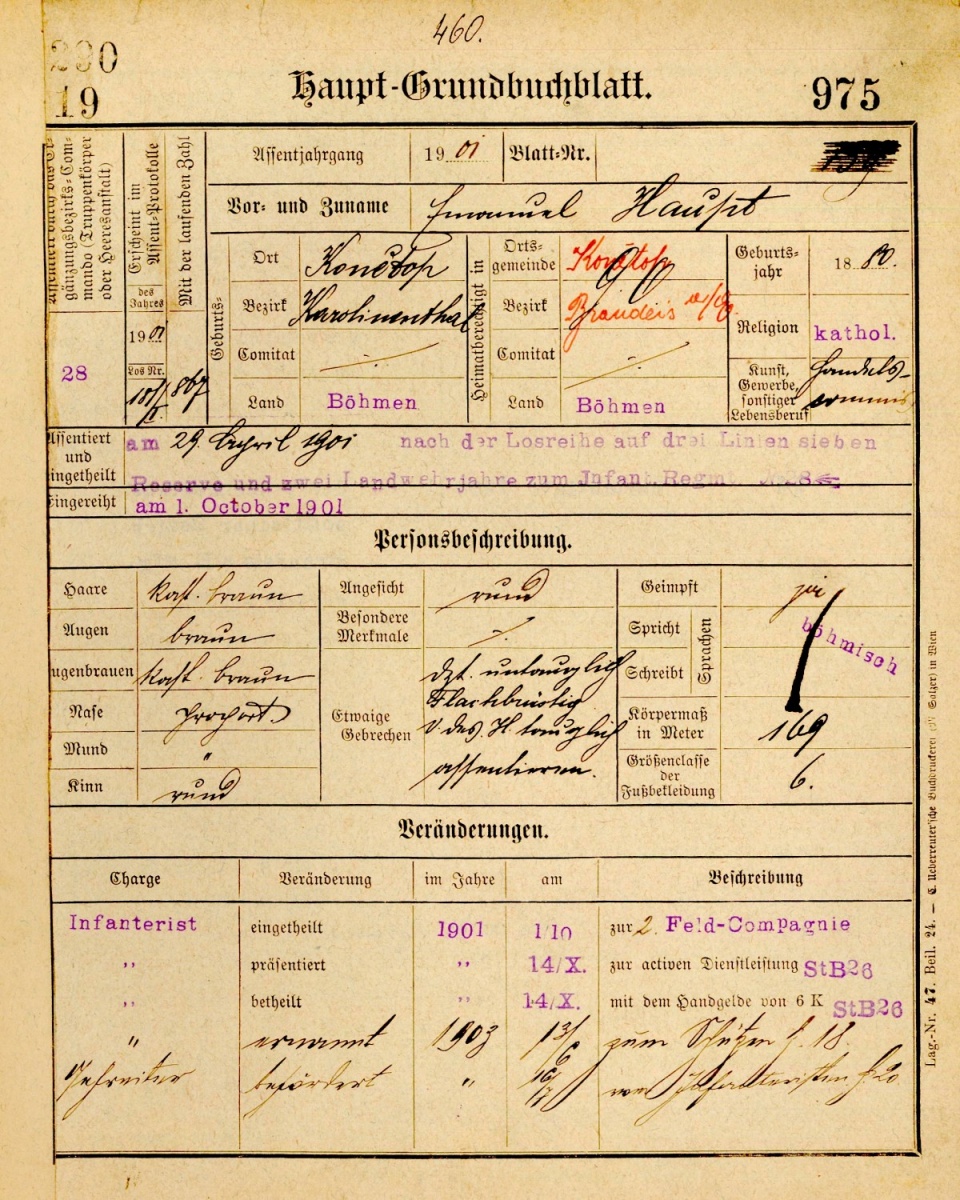 460.
290
19
Haupt-Grundbuchblatt.
975
gänzungsbezirks-Com-
mando (Truppenkörper
oder Heeresanstalt)
28
Erscheint im
Assent-Protokolle
des
Jahres
1901
Los Nr.
Mit der laufenden Zahl
867
Assentjahrgang 1901 Blatt-Nr.
Vor- und Zuname Emanuel Haupt
Geburts-
Ort Konětop
Bezirk Karolinenthal
Comitat ·/·
Land Böhmen
Heimatberechtigt in
Orts-
gemeinde Konětop
Bezirk Brandeis a/E
Comitat ·/·
Land Böhmen
Geburts-
jahr 1880.
Religion kathol.
Kunst,
Gewerbe,
sonstiger
Lebensberuf
Handels-
commis
Assentiert
und
eingetheilt
am 29. April 1901 nach der Losreihe auf drei Linien sieben
Reserve und zwei Landwehrjahre zum Infant. Regmt. No 28
Eingereiht am 1. October 1901
Personsbeschreibung.
Haare kast. braun
Augen braun
Augenbrauen kast. braun
Nase proport.
Mund "
Kinn rund
Angesicht rund
Besondere
Merkmale ·/·
Etwaige
Gebrechen
dzt. untauglich
Flachbrüstig
v. des. H. tauglich
assentieren.
Geimpft ja
Spricht
Schreibt
Sprachen
böhmisch
Körpermaß
in Meter 169
Größenclasse
der
Fußbekleidung 6.
Veränderungen.
Charge Veränderung im Jahre am Beschreibung
Infanterist eingetheilt 1901 1/10 zur 2. Feld-Compagnie
" präsentiert " 14/X. zur activen Dienstleistung StB26
" betheilt " 14/X. mit dem Handgelde von 6 K StB26
" ernannt 1903 13/6 zum Schützen § 18.
Gefreiter befördert " 16/7
Lag.-Nr. 47. Beil. 24. — C. Ueberreuter'sche Buchdruckerei (M. Salzer) in Wien